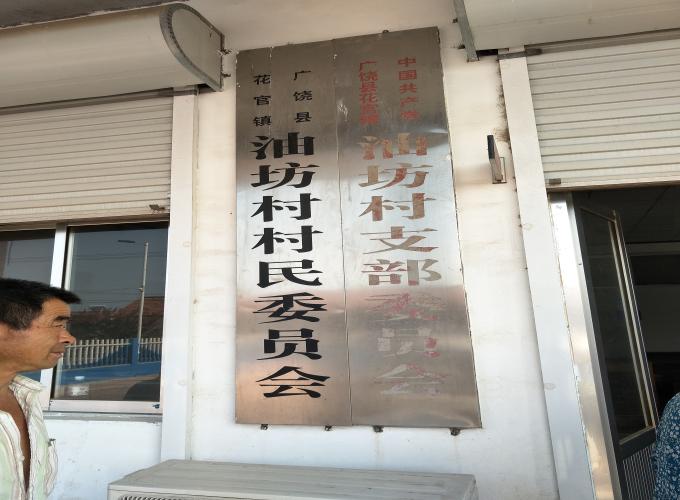 中国共产党
广饶县花官镇
油坊村支部委员会
广饶县
花官镇
油坊村村民委员会